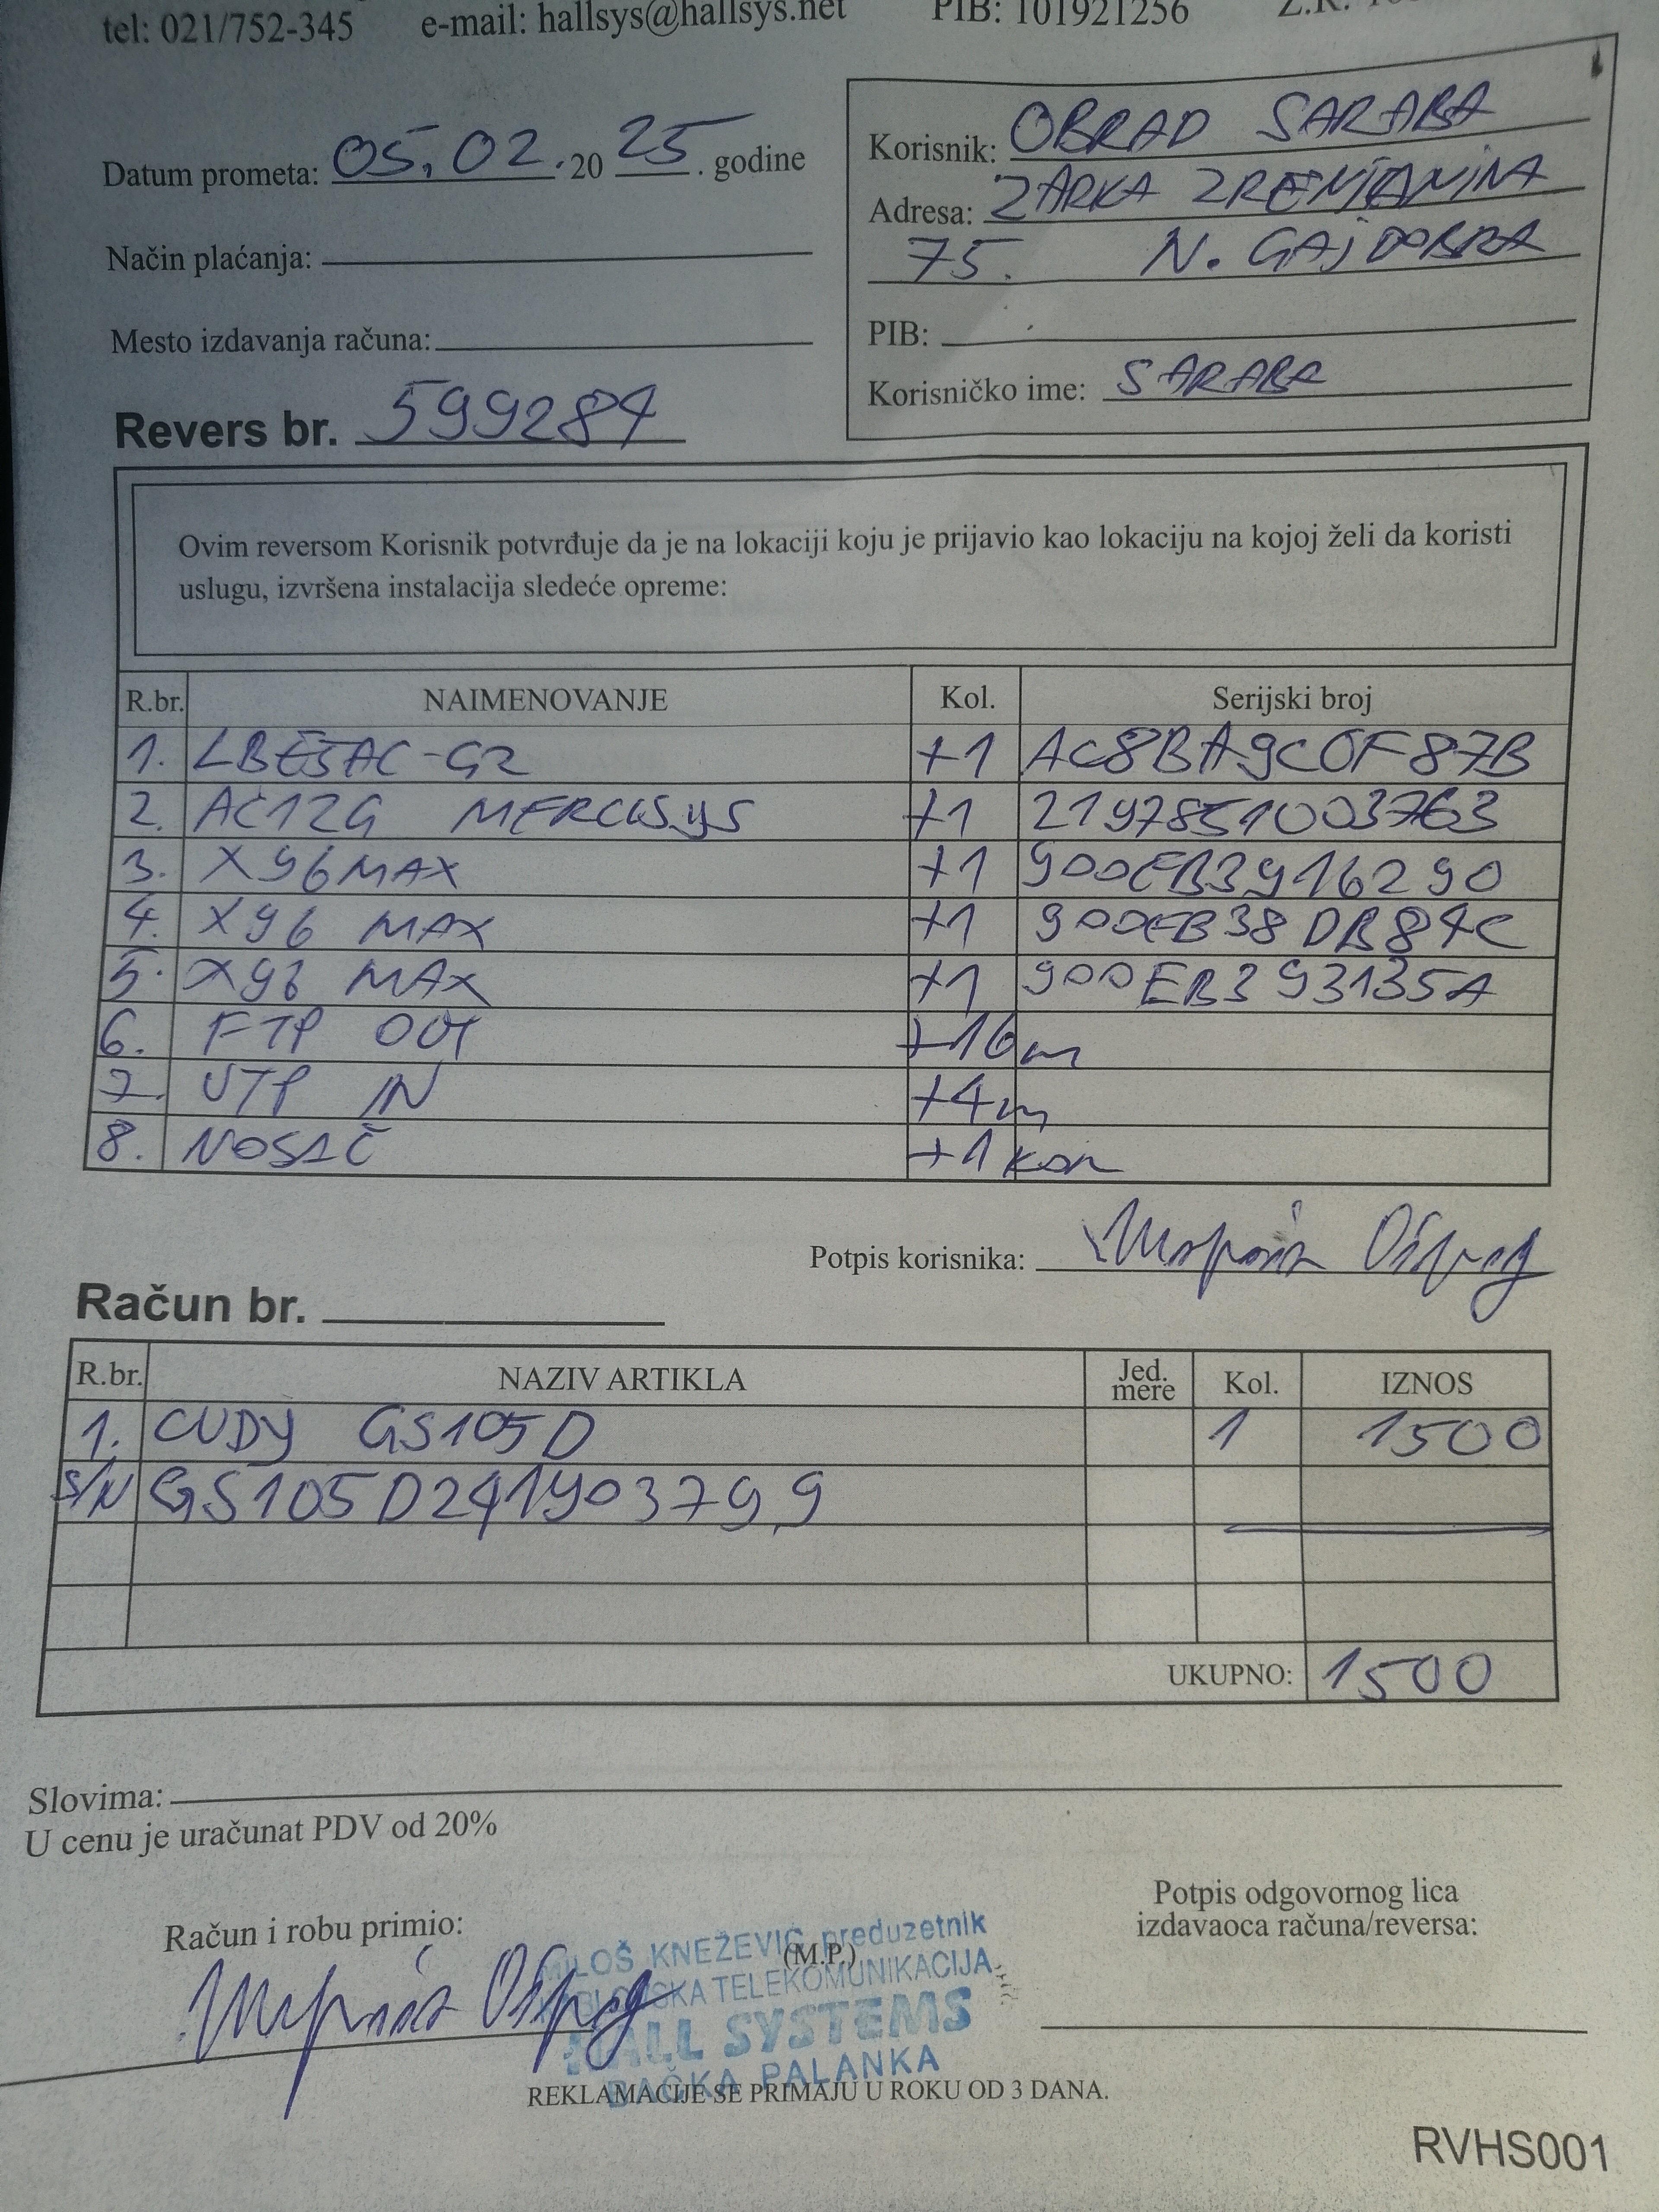 tel: 021/752-345 e-mail: hallsys@hallsys.net PIB: 101921256 Z.R.
Datum prometa: 05.02.2025. godine
Način plaćanja:
Mesto izdavanja računa:
Revers br. 599284
Korisnik: OBRAD SARABA
Adresa: ZARKA ZRENJANINA
75. N. GAJDOBRA
PIB:
Korisničko ime: SARABA
Ovim reversom Korisnik potvrđuje da je na lokaciji koju je prijavio kao lokaciju na kojoj želi da koristi
uslugu, izvršena instalacija sledeće opreme:
R.br. NAIMENOVANJE Kol. Serijski broj
1. LBE5AC-G2 +1 AC8BA9C0F87B
2. AC12G MERCUSYS +1 2197851003763
3. X96MAX +1 900EB3916290
4. X96 MAX +1 900EB38DB84C
5. X96 MAX +1 900EB393135A
6. FTP OUT +16m
7. UTP IN +4m
8. NOSAČ +1 kom
Potpis korisnika:
Račun br.
R.br. NAZIV ARTIKLA Jed. mere Kol. IZNOS
1. CUDY GS105D 1 1500
S/N GS105D241903799
UKUPNO: 1500
Slovima:
U cenu je uračunat PDV od 20%
Račun i robu primio:
(M.P.)
Potpis odgovornog lica
izdavaoca računa/reversa:
MILOŠ KNEŽEVIĆ preduzetnik
TELEKOMUNIKACIJA
HALL SYSTEMS
BAČKA PALANKA
REKLAMACIJE SE PRIMAJU U ROKU OD 3 DANA.
RVHS001